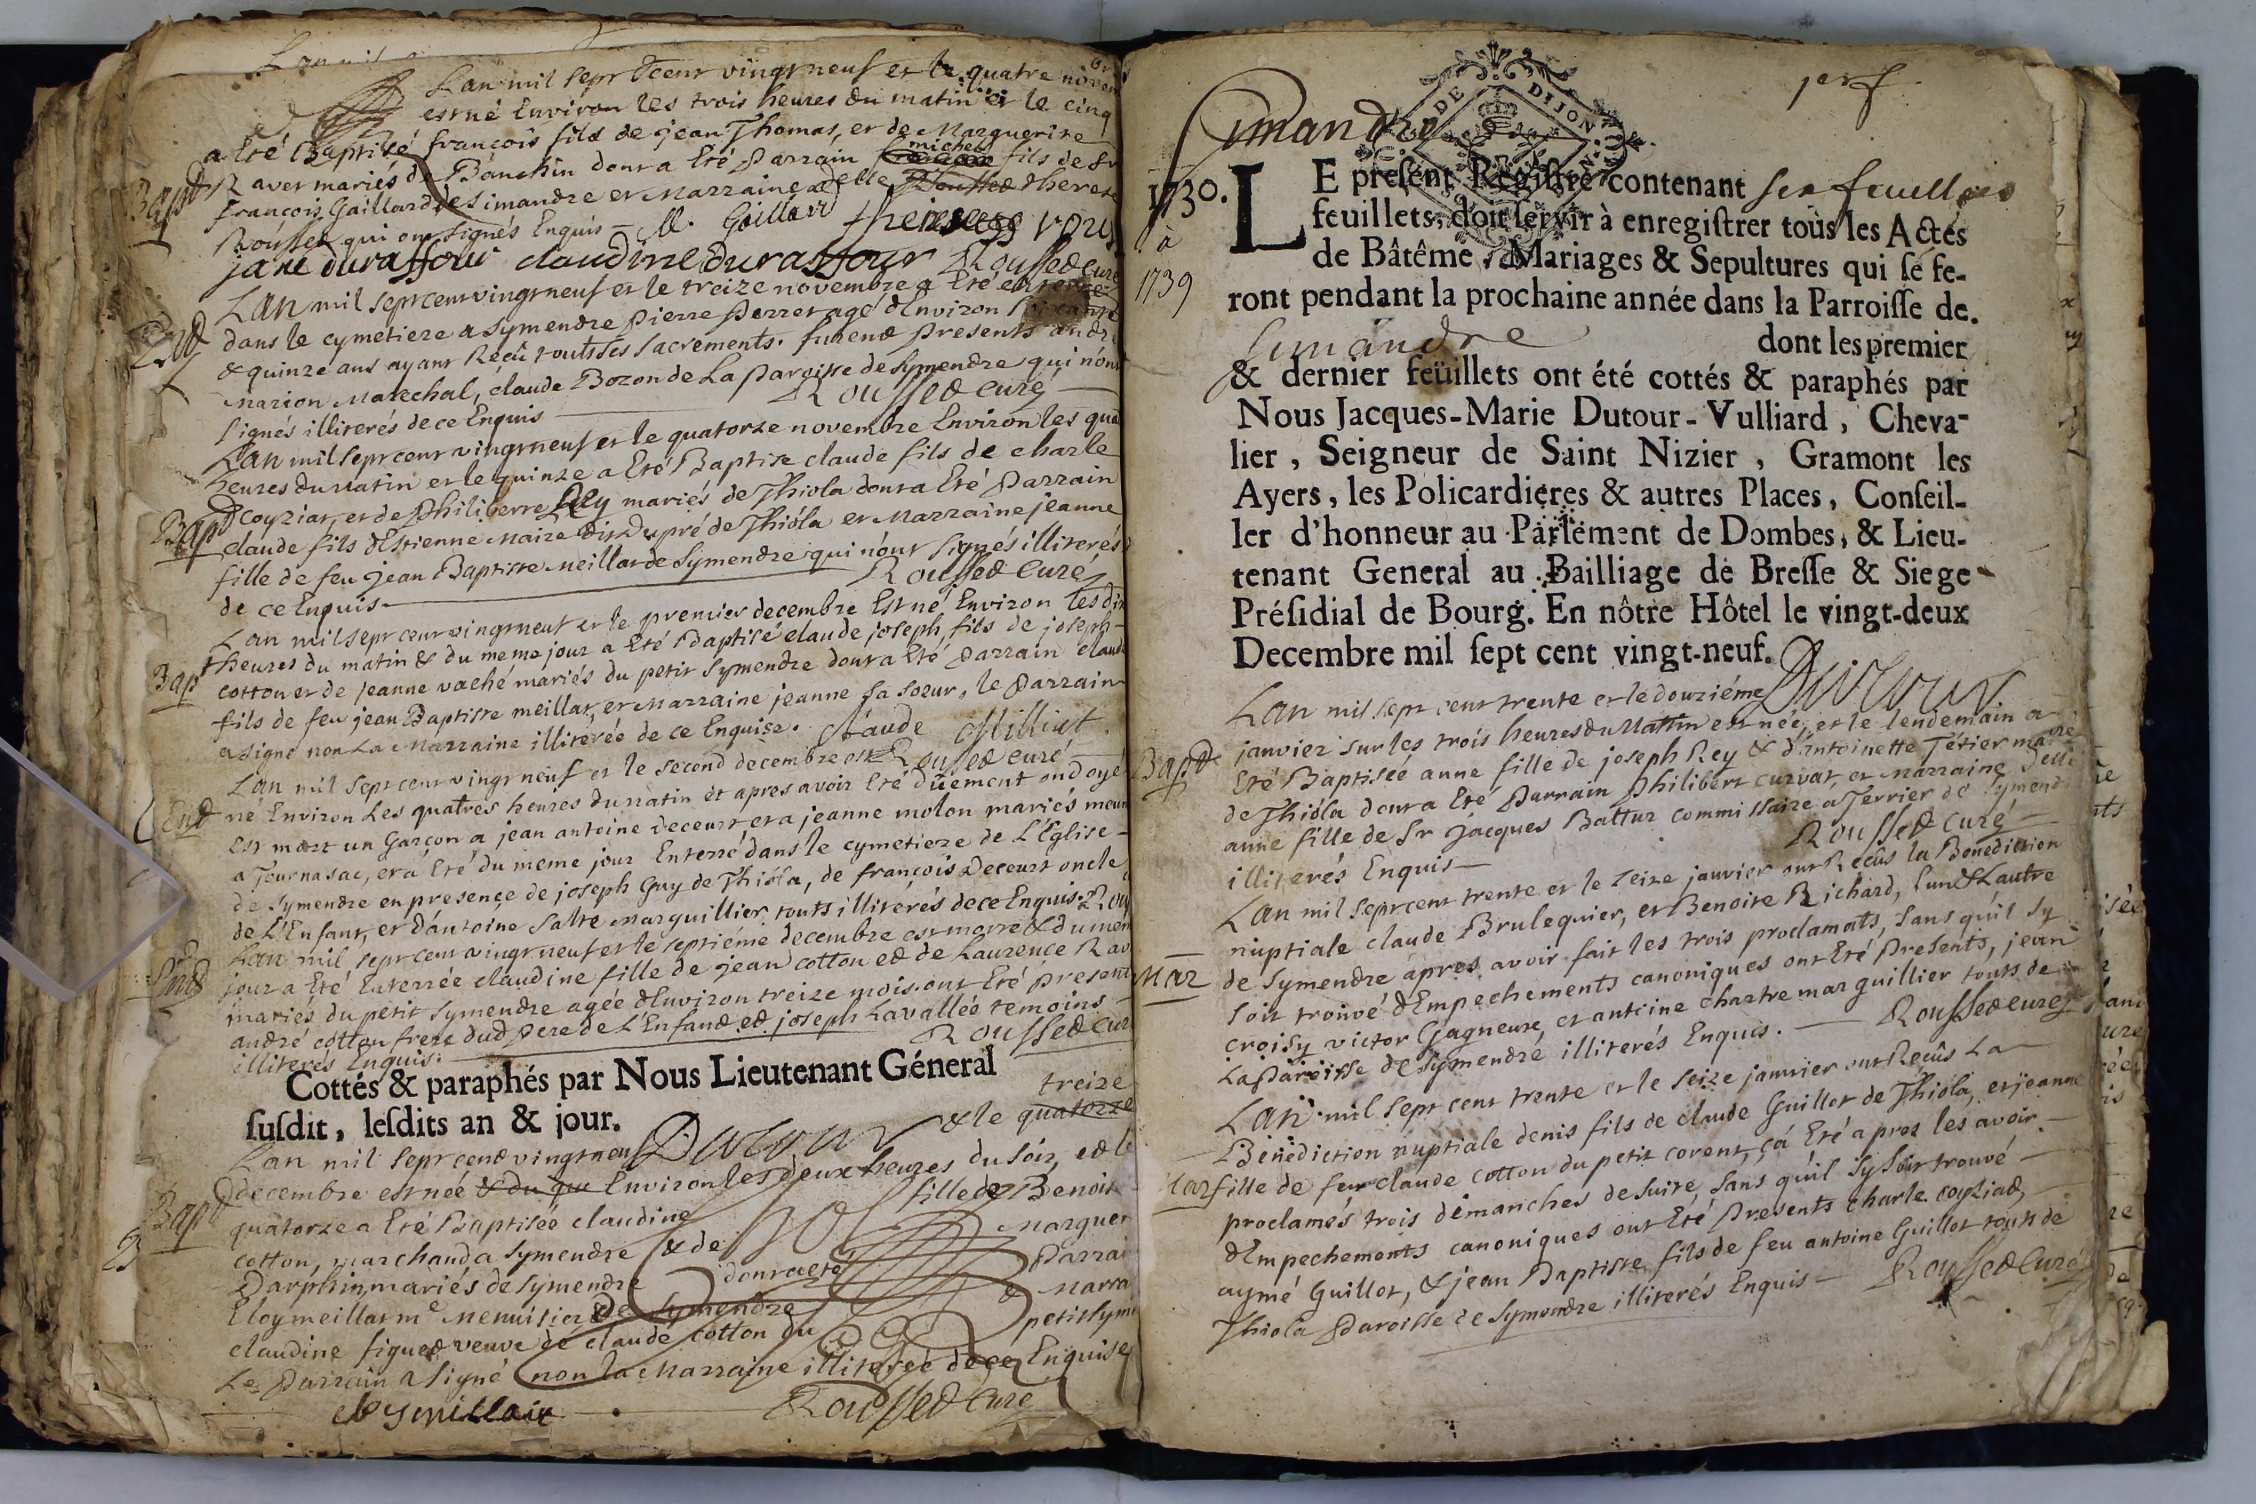 Lan mil sept Cent vingt neuf et le quatre novem
est né Environ les trois heures du matin et le cinq
a Eté Baptisé françois fils de jean Thomas, et de Marguerite
Bapt Ravet mariés de Banchin dont a Eté Parrain michel fils de
françois Gaillard de Simandre et Marraine delle therese
Roussel qui ont signés Enquis — M. Gaillard therese
jane durassour claudine durassour Roussed curé
Lan mil sept cent vingt neuf et le treize novembre a Eté enterré
dans le cymetiere a symendre Pierre Perret agé d'Environ
& quinze ans ayant Recû touts ses sacrements. furent presents andré
Marion Marechal, claude Bozon de La paroisse de symendre qui n'ont
signés illiterés de ce Enquis — Roussed curé
Lan mil sept cent vingt neuf et le quatorze novembre Environ les
heures du matin et le quinze a Eté Baptisé claude fils de charle
Bapt coyziat, et de Philiberte Rey mariés de Thiola dont a Eté Parrain
claude fils d'Estienne Maize dit Dupré de Thióla et Marraine jeanne
fille de feu jean Baptiste Meillar de Symendre qui n'ont signés illiterés
de ce Enquis — Roussed Curé
Lan mil sept cent vingt neuf et le premier decembre Est né Environ les dix
heures du matin & du meme jour a Eté Baptisé claude joseph, fils de joseph
Bapt cotton et de jeanne vaché mariés du petit Symendre dont a Eté Parrain claude
fils de feu jean Baptiste meillar, et Marraine jeanne sa soeur, le Parrain
a signé non La Marraine illiterée de ce Enquise. Claude Milliat
Lan mil sept cent vingt neuf et le second decembre est Roussed curé
né Environ Les quatres heures du matin et apres avoir Eté dûement ondoyé
Est mort un Garçon a jean antoine Deceurt et a jeanne molon mariés
a Tournasac, et a Eté du meme jour Enterré dans le cymetiere de L'Eglise
de Symendre en presence de joseph Guy de Thióla, de françois Deceurt oncle
de L'Enfant, et d'antoine Salte Marguillier, touts illiterés de ce Enquis.
Lan mil sept cent vingt neuf et le septiéme decembre est morte & du meme
jour a Eté Enterrée claudine fille de jean cotton et de Laurence
mariés du petit symendre agée d'Environ treize mois. ont Eté present
andré cotton frere dud Pere de L'Enfand ed joseph Lavallée temoins
illiterés Enquis. — Roussed cur
Cottés & paraphés par Nous Lieutenant Géneral
susdit, lesdits an & jour.
Lan mil sept cend vingt neuf Dutour & le quatorze treize
Bapt decembre est née & du que Environ les deux heures du soir, ed le
quatorze a Eté Baptisée claudine fille de Benoit
cotton, marchand a symendre & de Marguer
Darphin, mariés de symendre dont a eté Parrai
Eloy meillar me Menuisier de Symendre & Marra
claudine figued veuve de claude cotton du petit Sym
Le Parrain a signé non la Marraine illiterée de ce Enquise
Roussed Curé
Simandre
1730. à 1739
DE DIJON
LE present Registre contenant
feuillets, doit servir à enregistrer tous les Actes
de Bâtême, Mariages & Sepultures qui se fe-
ront pendant la prochaine année dans la Parroisse de.
Simandre dont les premier
& dernier feüillets ont été cottés & paraphés par
Nous Jacques-Marie Dutour-Vulliard, Cheva-
lier, Seigneur de Saint Nizier, Gramont les
Ayers, les Policardieres & autres Places, Conseil-
ler d'honneur au Parlement de Dombes, & Lieu-
tenant General au Bailliage de Bresse & Siege
Présidial de Bourg. En nôtre Hôtel le vingt-deux
Decembre mil sept cent vingt-neuf.
Dutour
Lan mil sept cent trente et le douziéme
janvier sur les trois heures du Mattin est née, et le lendemain a
Bapt Eté Baptisée anne fille de joseph Rey & d'antoinette Tétier mariés
de Thióla dont a Eté Parrain Philibert curvat, et Marraine delle
anne fille de Sr Jacques Battur commissaire a Terrier de Symend
illiterés Enquis — Roussed curé
Lan mil sept cent trente et le seize janvier ont Recûs la Benediction
nuptiale claude Brulequier, et Benoite Richard, l'un & L'autre
Mar de Symendre apres avoir fait les trois proclamats, sans qu'il sy
soit trouvé d'Empechements canoniques ont Eté presents, jean
croisy victor Gagneure, et antoine chartre marguillier touts de
La Paroisse de Symendre illiterés Enquis. — Roussed curé
Lan mil sept cent trente et le seize janvier ont Reçûs La
Bénédiction nuptiale denis fils de claude Guillot de Thióla, et jeanne
Mar fille de feu claude cotton du petit corent, çá Eté apres les avoir
proclamés trois dimanches de suite, sans qu'il sy soit trouvé
d'Empechements canoniques ont Eté Presents charle coyziad,
aymé Guillot, & jean Baptiste fils de feu antoine Guillot touts de
Thiola Paroisse de Symendre illiterés Enquis — Roussed Curé